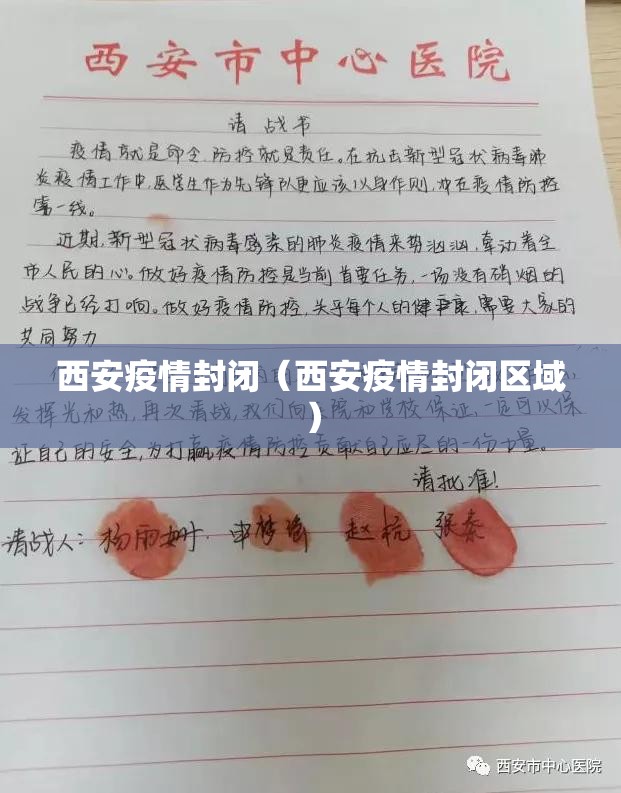 西安市中心医院
请战书
疫情就是命令,防控就是责任。在抗击新型冠状病毒肺
炎疫情工作中,医学生作为先锋队更应该以身作则,冲在疫情防控
第一线。
近期,新型冠状病毒感染的肺炎疫情来势汹汹,牵动着全
市人民的心。做好疫情防控是当前首要任务,一场没有硝烟的
战争已经打响。做好疫情防控,关乎每个人的健康,需要大家的
共同努力
西安疫情封闭(西安疫情封闭区域
)
发挥光和热,再次请战,我们向医院和学校保证,一定可以保
证自己的安全,为打赢疫情防控贡献自己应尽的一份力量。
请批准!
请战人:杨雨树.申梦 赵杭 张泰
西安市中心医院